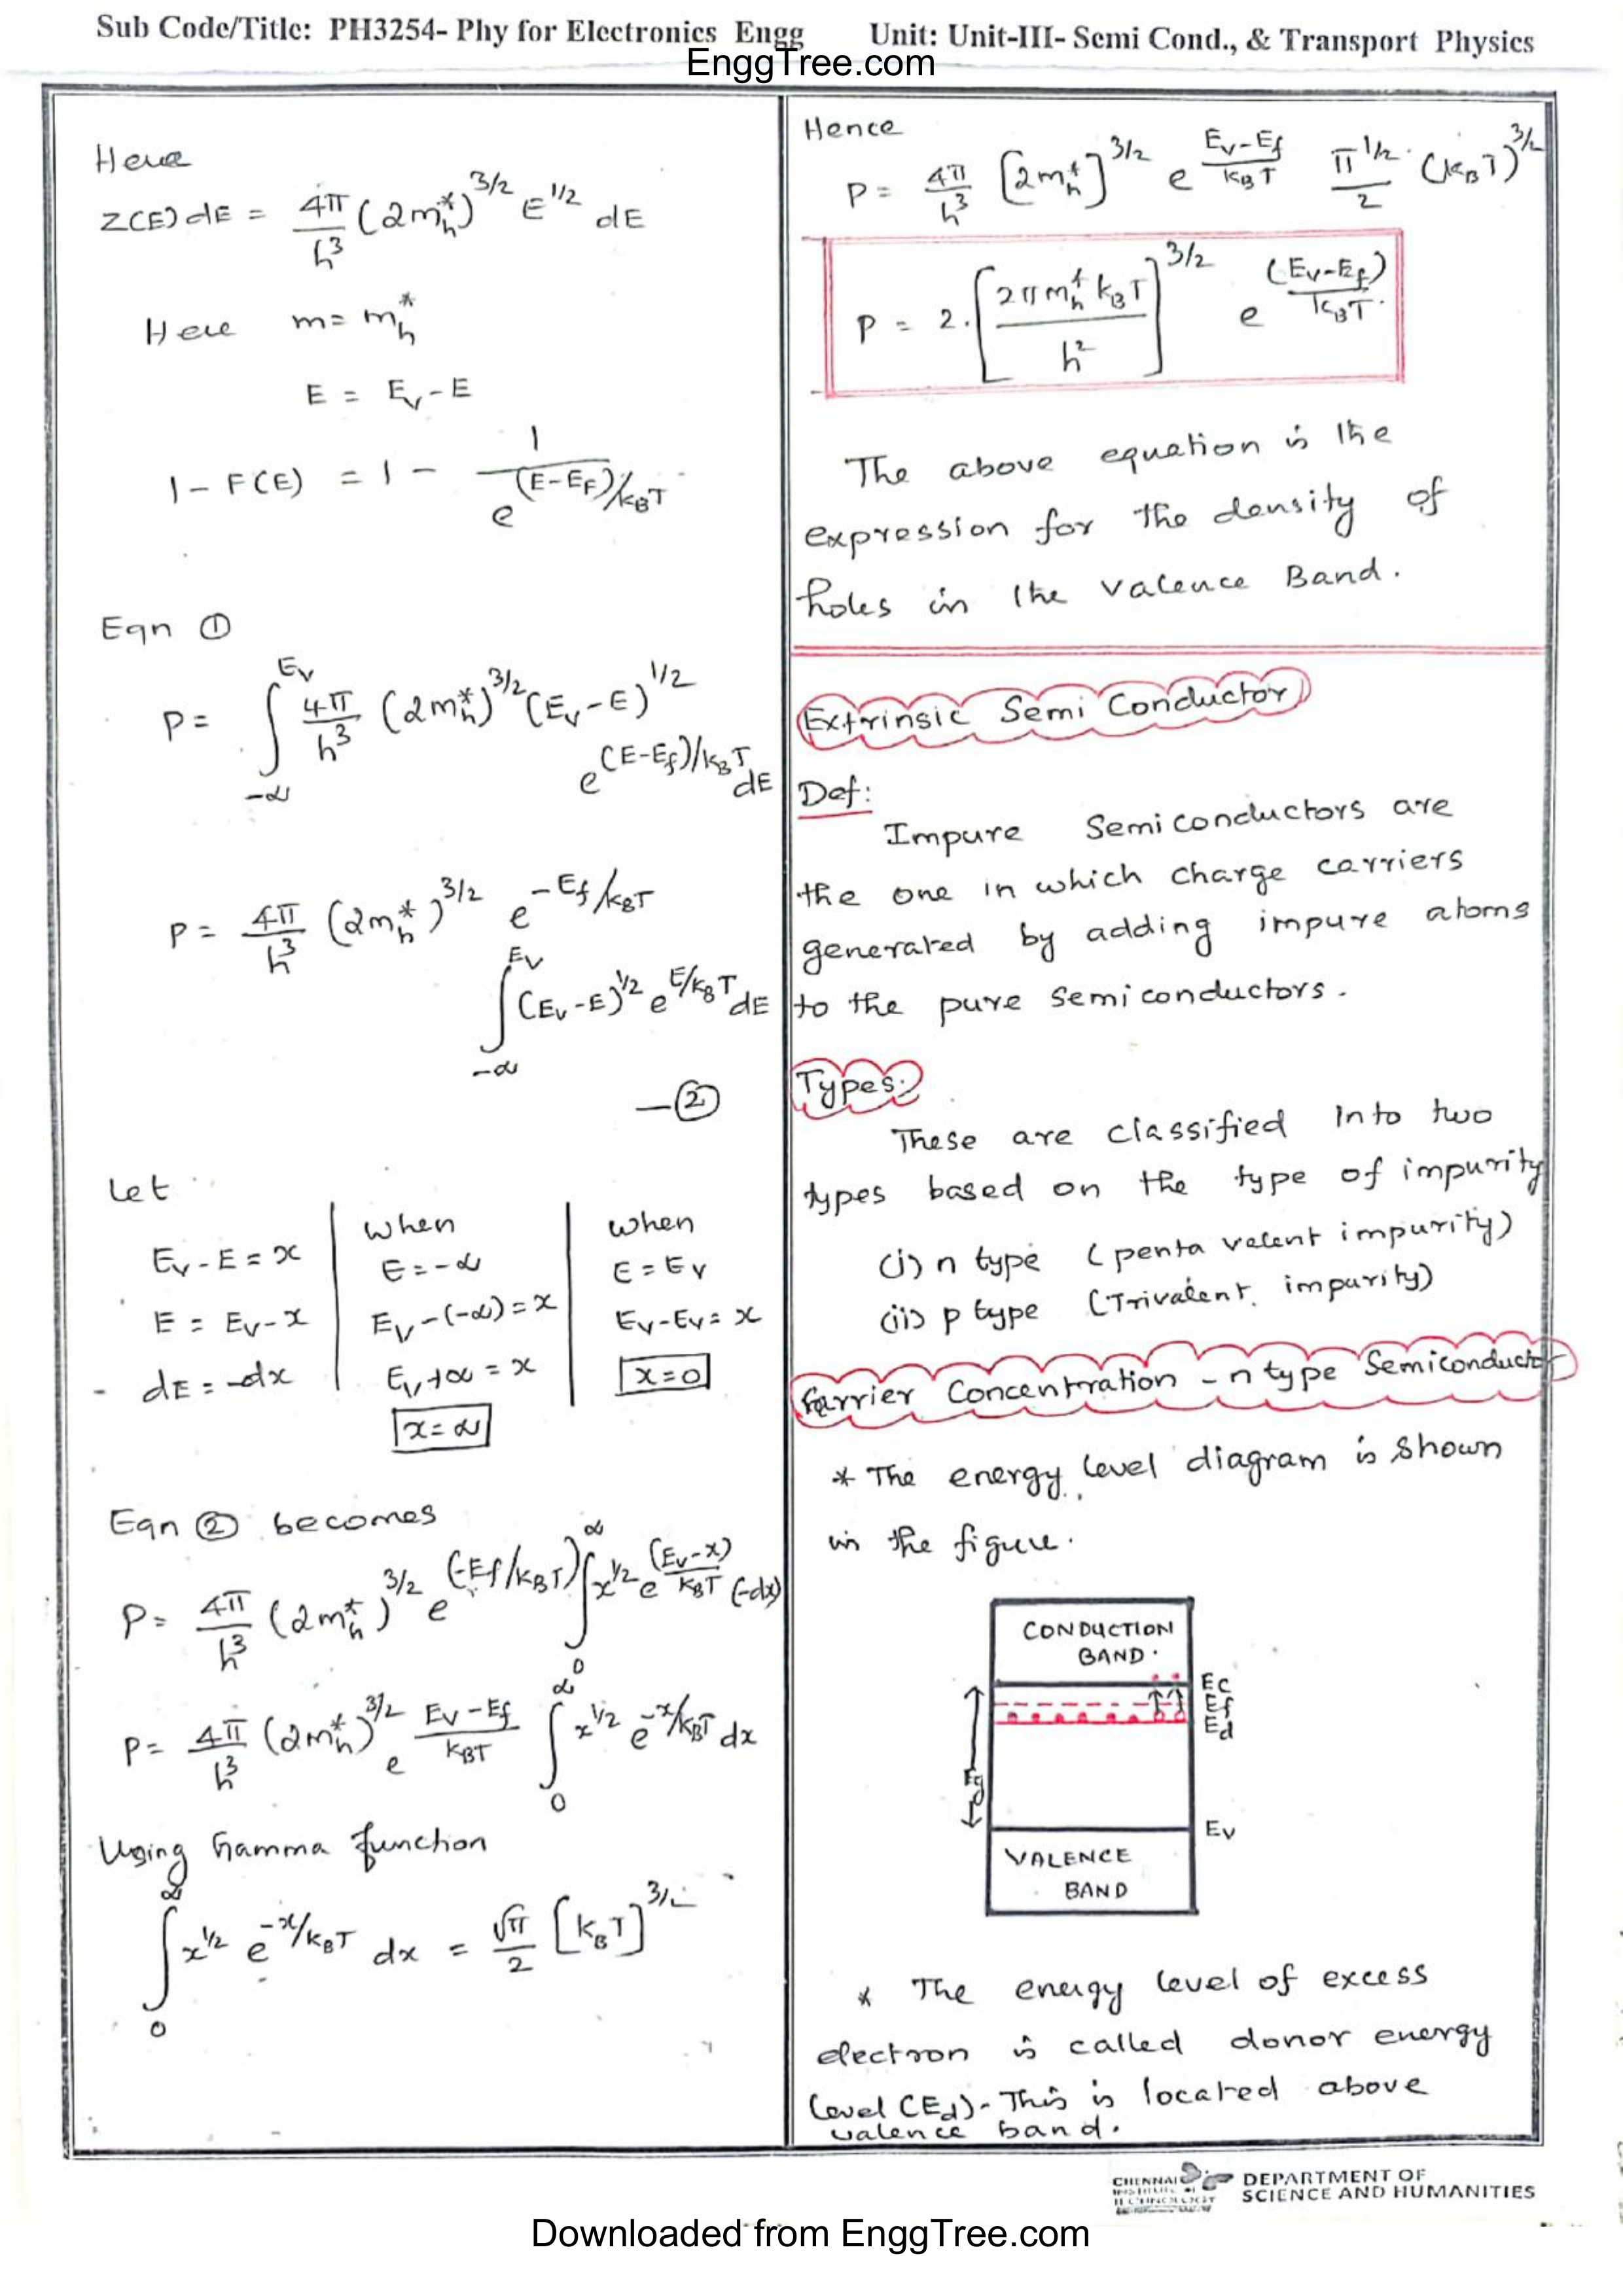 Sub Code/Title: PH3254- Phy for Electronics Engg Unit: Unit-III- Semi Cond., & Transport Physics
EnggTree.com
Here
Z(E) dE = 4π/h³ (2m*h)^3/2 E^1/2 dE
Here m = m*h
E = Ev - E
1 - F(E) = 1 - 1/e^(E-EF)/kBT
Eqn ①
P = ∫_-∞^Ev 4π/h³ (2m*h)^3/2 (Ev-E)^1/2
e^(E-Ef)/kBT dE
P = 4π/h³ (2m*h)^3/2 e^-Ef/kBT
∫_-∞^Ev (Ev-E)^1/2 e^E/kBT dE
—②
Let
Ev-E = x | when | when
E = -∞ | E = Ev
E = Ev-x | Ev-(-∞) = x | Ev-Ev = x
dE = -dx | Ev+∞ = x | x=0
x=∞
Eqn ② becomes
P = 4π/h³ (2m*h)^3/2 e^(-Ef/kBT) ∫_0^∞ x^1/2 e^(Ev-x)/kBT (-dx)
P = 4π/h³ (2m*h)^3/2 e^(Ev-Ef)/kBT ∫_0^∞ x^1/2 e^-x/kBT dx
Using Gamma function
∫_0^∞ x^1/2 e^-x/kBT dx = √π/2 [kBT]^3/2
Hence
P = 4π/h³ [2m*h]^3/2 e^(Ev-Ef)/kBT π^1/2/2 . (kBT)^3/2
P = 2.[2πm*h kBT/h²]^3/2 e^(Ev-Ef)/kBT.
The above equation is the
expression for the density of
holes in the valence Band.
Extrinsic Semi Conductor
Def:
Impure Semiconductors are
the one in which charge carriers
generated by adding impure atoms
to the pure semiconductors.
Types:
These are classified into two
types based on the type of impurity
(i) n type (penta valent impurity)
(ii) p type (Trivalent impurity)
Carrier Concentration - n type Semiconductor
* The energy level diagram is shown
in the figure.
CONDUCTION
BAND.
Ec
Ef
Ed
Eg
Ev
VALENCE
BAND
* The energy level of excess
electron is called donor energy
level (Ed). This is located above
valence band.
CHENNAI
INSTITUTE OF
TECHNOLOGY
DEPARTMENT OF
SCIENCE AND HUMANITIES
Downloaded from EnggTree.com